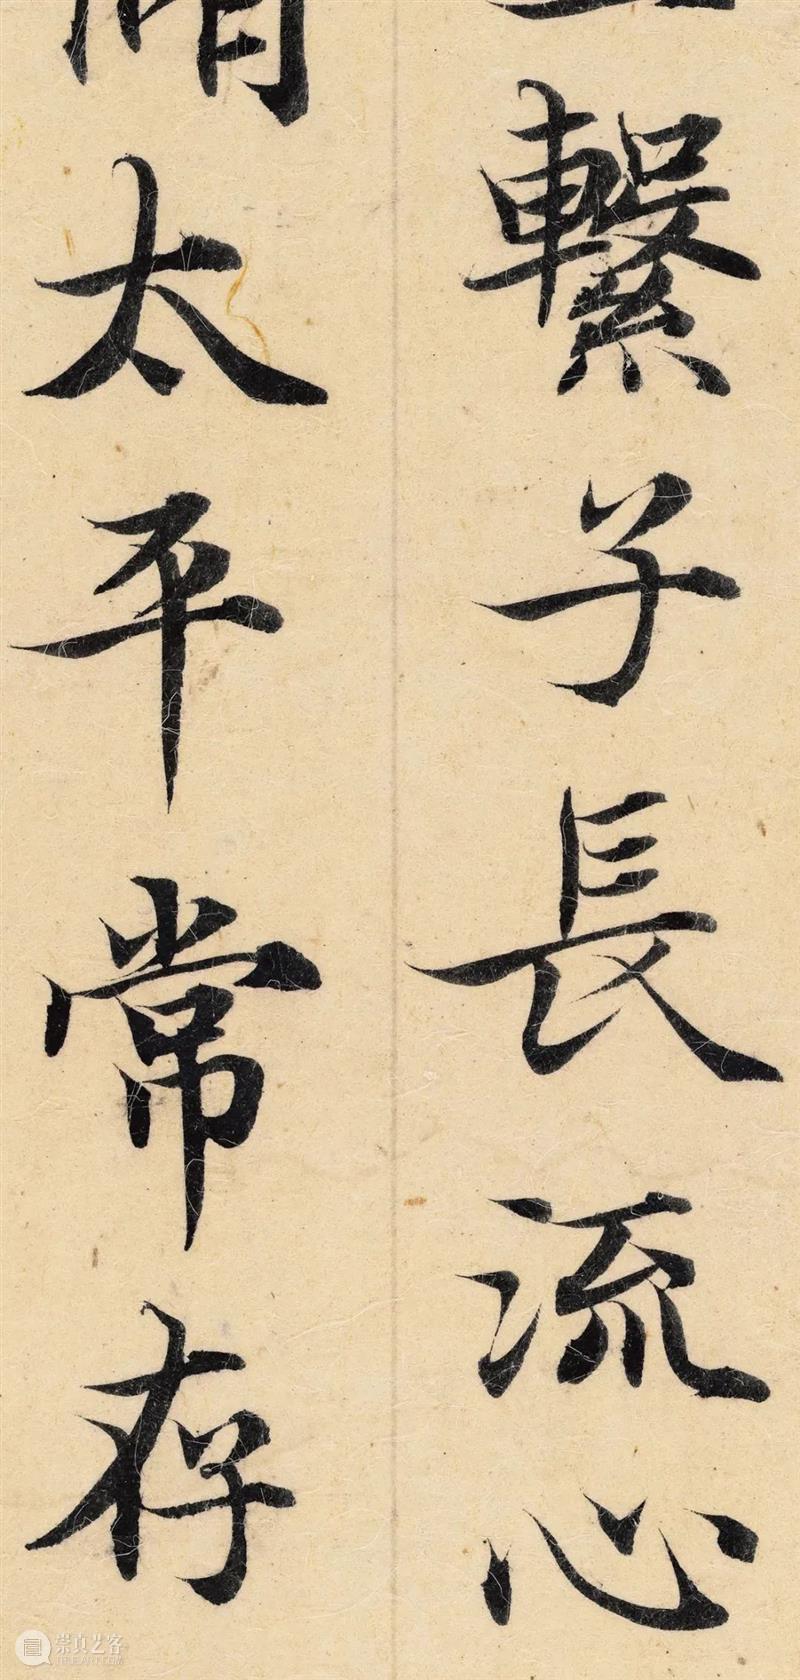 繫子長流心
太平常存
崇真艺客
TRUEART.COM